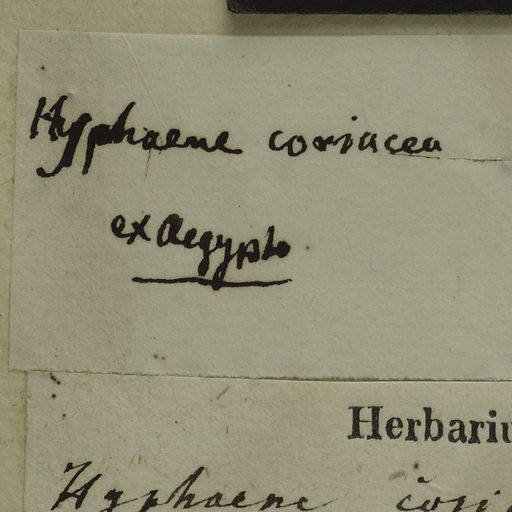 Hyphaene coriacea
ex Aegypto
Herbariu
Hyphaene cori